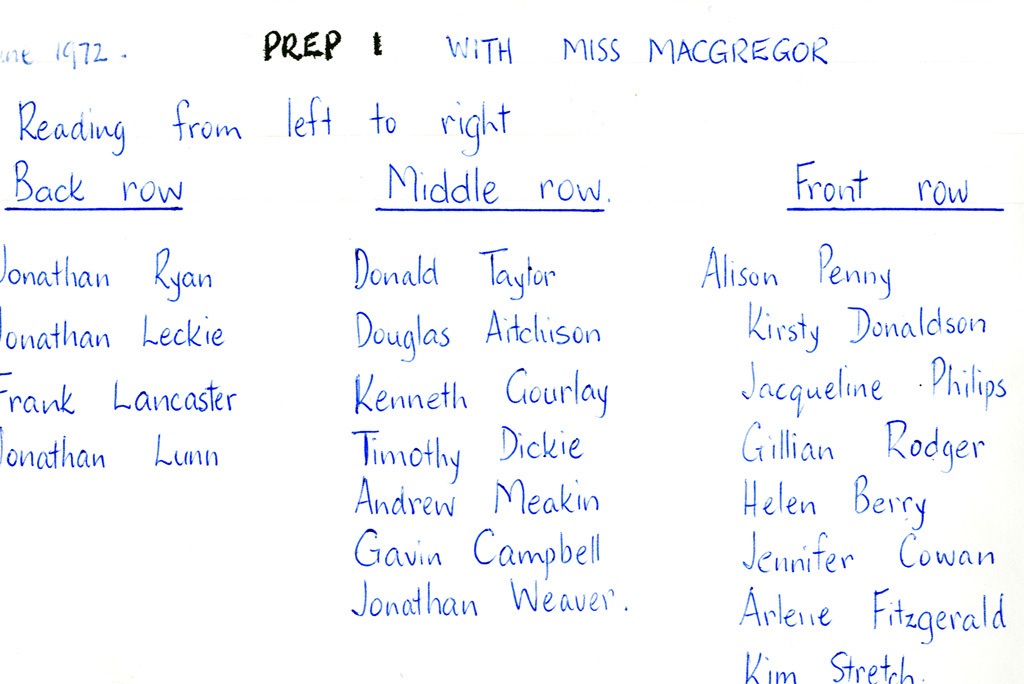 June 1972. PREP 1 WITH MISS MACGREGOR
Reading from left to right
Back row
Jonathan Ryan
Jonathan Leckie
Frank Lancaster
Jonathan Lunn
Middle row.
Donald Taylor
Douglas Aitchison
Kenneth Gourlay
Timothy Dickie
Andrew Meakin
Gavin Campbell
Jonathan Weaver.
Front row
Alison Penny
Kirsty Donaldson
Jacqueline Philips
Gillian Rodger
Helen Berry
Jennifer Cowan
Arlene Fitzgerald
Kim Stretch.